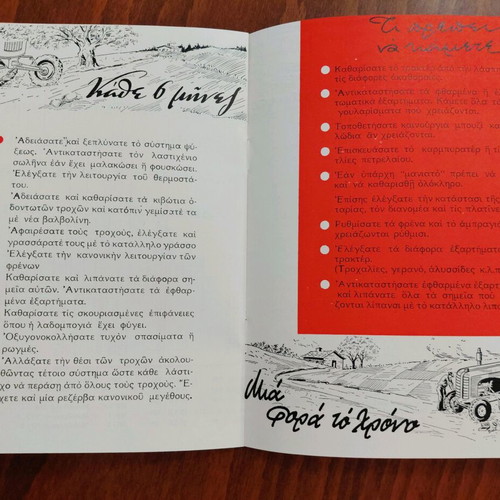 κάθε 6 μῆνες
Ἀδειάσατε καί ξεπλύνατε τό σύστημα ψύ-
ξεως. Ἀντικαταστήσατε τόν λαστιχένιο
σωλῆνα ἐάν ἔχει μαλακώσει ἤ φουσκώσει.
Ἐλέγξατε τήν λειτουργία τοῦ θερμοστά-
του.
Ἀδειάσατε καί καθαρίσατε τά κιβώτια ὀ-
δοντωτῶν τροχῶν καί κατόπιν γεμίσατέ τα
μέ νέα βαλβολίνη.
Ἀφαιρέσατε τούς τροχούς, ἐλέγξατε καί
γρασσάρατέ τους μέ τό κατάλληλο γράσσο
Ἐλέγξατε τήν κανονική λειτουργίαν τῶν
φρένων
Καθαρίσατε καί λιπάνατε τά διάφορα ση-
μεῖα αὐτῶν. Ἀντικαταστήσατε τά ἐφθαρ-
μένα ἐξαρτήματα.
Καθαρίσατε τίς σκουριασμένες ἐπιφάνειες
ὅπου ἡ λαδομπογιά ἔχει φύγει.
Ὀξυγονοκολλήσατε τυχόν σπασίματα ἤ
ρωγμές.
Ἀλλάξατε τήν θέσι τῶν τροχῶν ἀκολου-
θῶντας τέτοιο σύστημα ὥστε κάθε λάστι-
χο νά περάση ἀπό ὅλους τούς τροχούς. Ἔ-
χετε καί μία ρεζέρβα κανονικοῦ μεγέθους.
Τί
νά
Καθαρίσατε τό
τίς διάφορες ἀκαθαρσίες.
Ἀντικαταστήσατε τά φθαρμένα ἤ
ὅλα
χρειάζονται.
Τοποθετήσατε καινούργια μπουζί κα
λώδια ἄν χρειάζωνται.
Ἐπισκευάσατε τό καρμπυρατέρ ἤ τ
τλίες πετρελαίου.
Ἐάν ὑπάρχη "μανιατό" πρέπει νά
καί νά καθαρισθῆ ὁλόκληρο.
Ἐπίσης ἐλέγξατε τήν κατάστασι τῆς
ταρίας, τόν διανομέα καί τίς πλατίνε
Ρυθμίσατε τά φρένα καί τό ἀμπραγιά
χρειάζωνται ρύθμισι.
Ἐλέγξατε τά διάφορα ἐξαρτήματ
τρακτέρ.
(Τροχαλίες, γερανό, ἁλυσσίδες κ.λ.π.
Ἀντικαταστήσατε τά ἐφθαρμένα ἐξαρτή
καί λιπάνατε ὅλα τά σημεῖα πού
ζονται λίπανσι μέ τό κατάλληλο λιπα
Μιά
φορά τό χρόνο